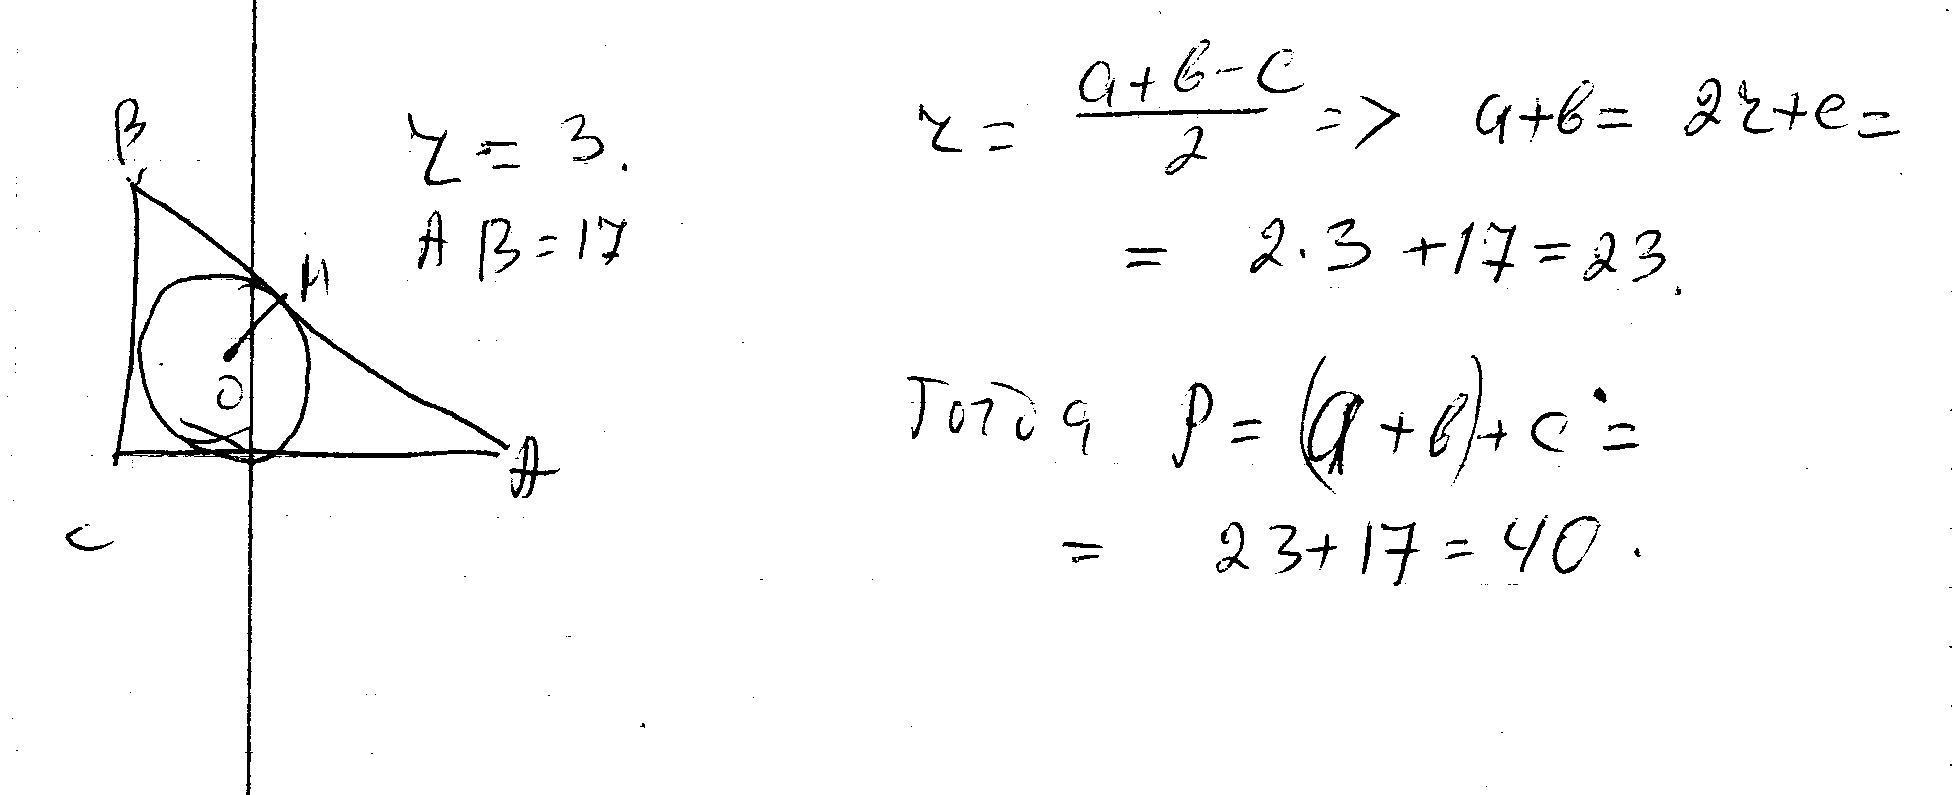 B
r = 3.
AB = 17
H
O
A
C
r = (a+b-c)/2 => a+b = 2r+c =
= 2·3 + 17 = 23.
Тогда P = (a + b) + c =
= 23 + 17 = 40.